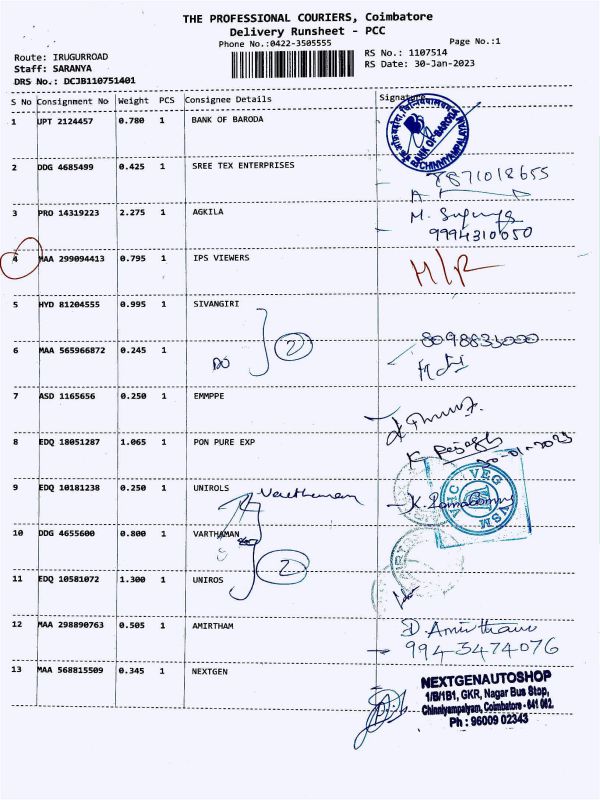 THE PROFESSIONAL COURIERS, Coimbatore
Delivery Runsheet - PCC
Phone No.:0422-3505555
Page No.:1
Route: IRUGURROAD
Staff: SARANYA
DRS No.: DCJB110751401
RS No.: 1107514
RS Date: 30-Jan-2023
S No Consignment No Weight PCS Consignee Details Signature
1 UPT 2124457 0.780 1 BANK OF BARODA
BANK OF BARODA
CHINNIYAMPALAYAM
2 DDG 4685499 0.425 1 SREE TEX ENTERPRISES
8871018655
3 PRO 14319223 2.275 1 AGKILA
9994310650
4 MAA 299094413 0.795 1 IPS VIEWERS
5 HYD 81204555 0.995 1 SIVANGIRI
2
6 MAA 565966872 0.245 1 DO
8098833000
7 ASD 1165656 0.250 1 EMMPPE
8 EDQ 18051287 1.065 1 PON PURE EXP
9 EDQ 10181238 0.250 1 UNIROLS
Varthaman
10 DDG 4655600 0.800 1 VARTHAMAN
2
11 EDQ 10581072 1.300 1 UNIROS
12 MAA 298890763 0.505 1 AMIRTHAM
D. Amirtham
9943474076
13 MAA 568815509 0.345 1 NEXTGEN
NEXTGENAUTOSHOP
1/B/1B1, GKR, Nagar Bus Stop,
Chinniyampalyam, Coimbatore - 641 062.
Ph : 96009 02343